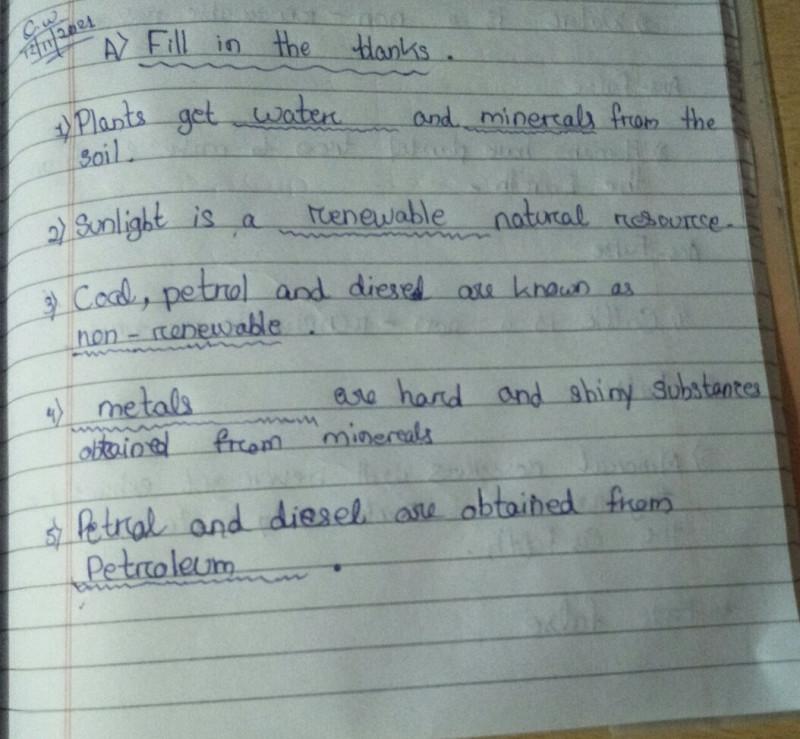 C.W
12/11/2021
A) Fill in the blanks.
1) Plants get water and minerals from the
soil.
2) Sunlight is a renewable natural resource.
3) Coal, petrol and diesel are known as
non-renewable.
4) metals are hard and shiny substances
obtained from minerals
5) Petrol and diesel are obtained from
Petroleum.